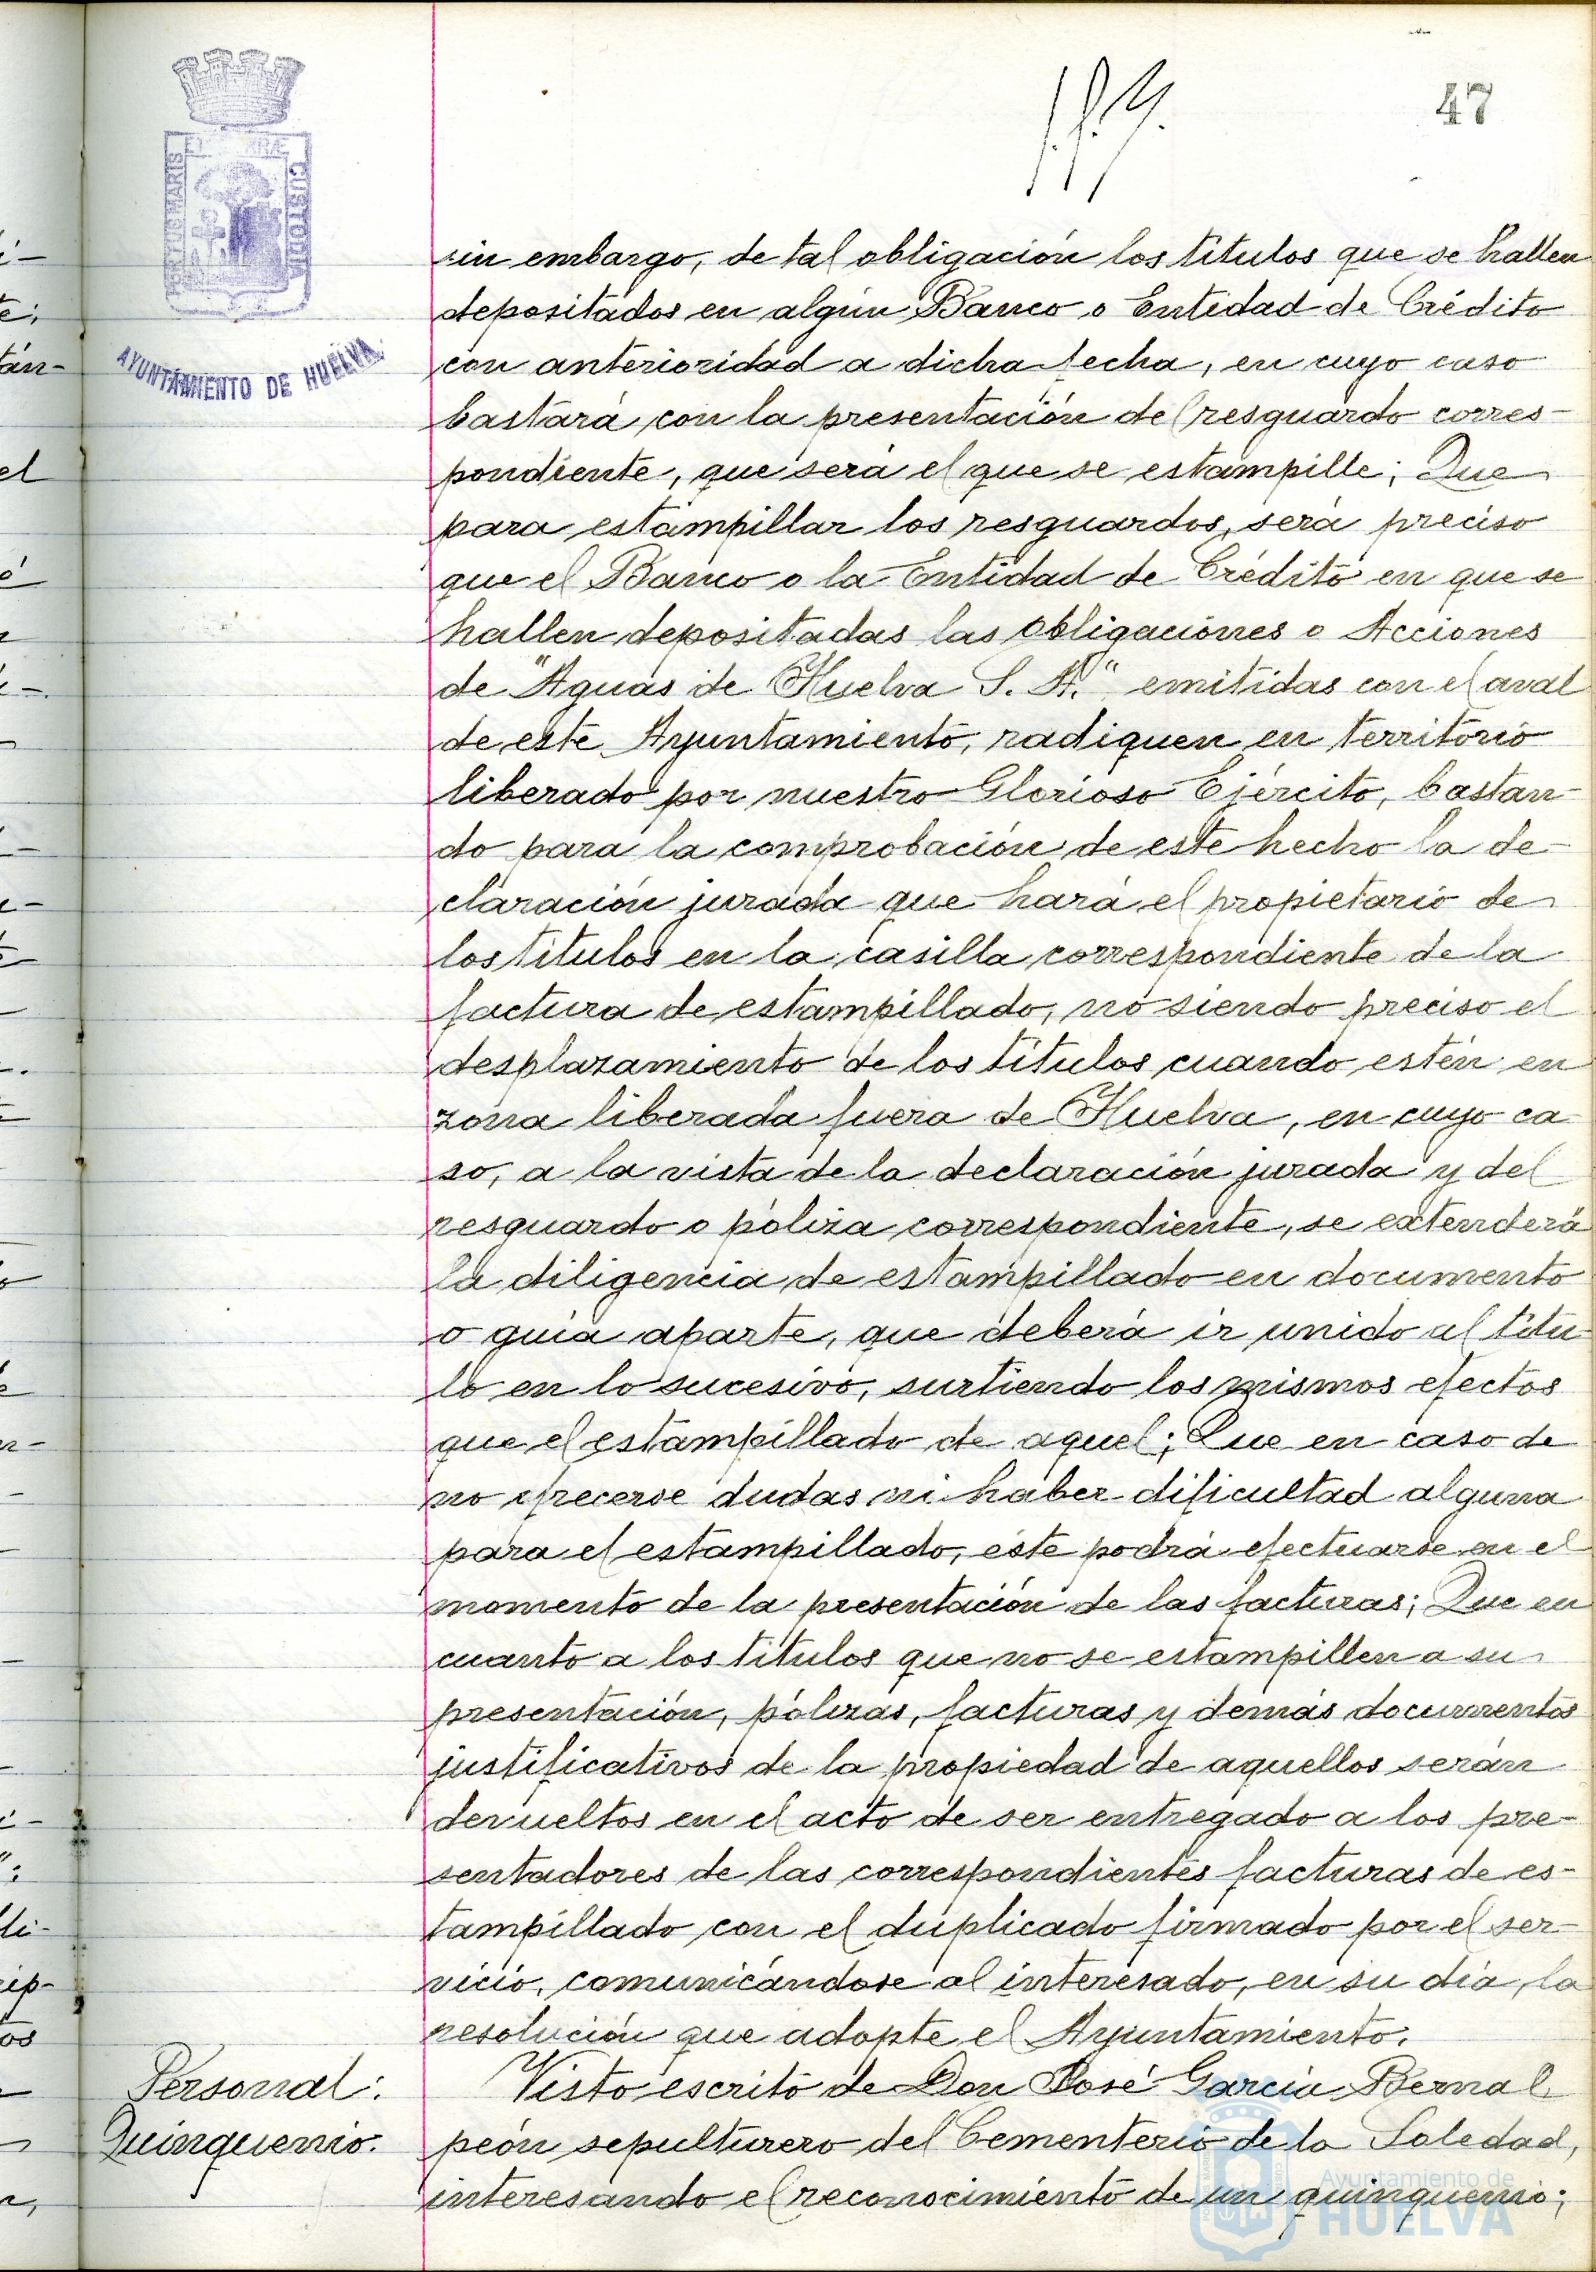 47
PORTUS MARIS ET TERRÆ CUSTODIA
AYUNTAMIENTO DE HUELVA
sin embargo, de tal obligación los títulos que se hallen
depositados en algún Banco o Entidad de Crédito
con anterioridad a dicha fecha, en cuyo caso
bastará con la presentación del resguardo corres-
pondiente, que será el que se estampille; Que
para estampillar los resguardos, será preciso
que el Banco o la Entidad de Crédito en que se
hallen depositadas las obligaciones o Acciones
de "Aguas de Huelva S. A." emitidas con el aval
de este Ayuntamiento, radiquen en territorio
liberado por nuestro Glorioso Ejército, bastan-
do para la comprobación de este hecho la de-
claración jurada que hará el propietario de
los títulos en la casilla correspondiente de la
factura de estampillado, no siendo preciso el
desplazamiento de los títulos cuando estén en
zona liberada fuera de Huelva, en cuyo ca
so, a la vista de la declaración jurada y del
resguardo o póliza correspondiente, se extenderá
la diligencia de estampillado en documento
o guía aparte, que deberá ir unido al títu-
lo en lo sucesivo, surtiendo los mismos efectos
que el estampillado de aquel; Que en caso de
no ofrecerse dudas ni haber dificultad alguna
para el estampillado, éste podrá efectuarse en el
momento de la presentación de las facturas; Que en
cuanto a los títulos que no se estampillen a su
presentación, pólizas, facturas y demás documentos
justificativos de la propiedad de aquellos serán
devueltos en el acto de ser entregado a los pre-
sentadores de las correspondientes facturas de es-
tampillado con el duplicado firmado por el ser-
vicio, comunicándose al interesado, en su día, la
resolución que adopte el Ayuntamiento.
Personal:
Quinquenio.
Visto escrito de Don José García Bernal
peón sepulturero del Cementerio de la Soledad,
interesando el reconocimiento de un quinquenio;
Ayuntamiento de
HUELVA